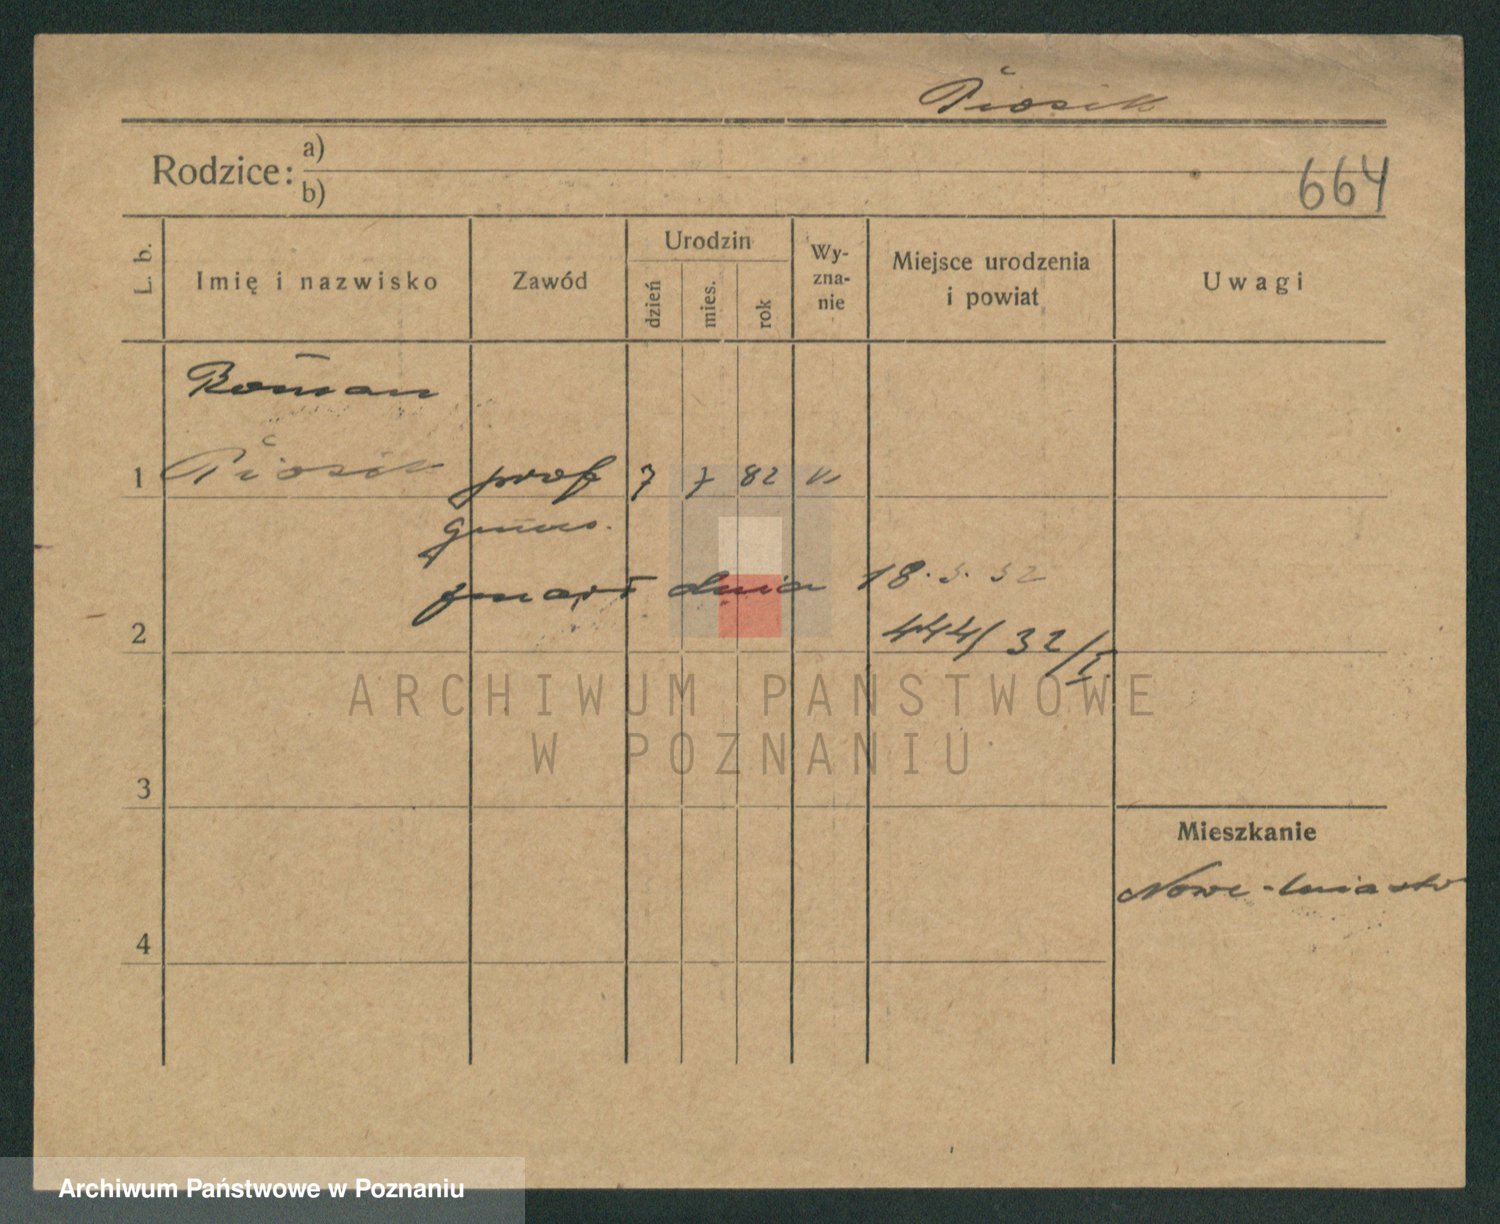 Piosik
Rodzice: a)
b)
664
L. b.
Imię i nazwisko
Zawód
Urodzin
dzień
mies.
rok
Wy-
zna-
nie
Miejsce urodzenia
i powiat
Uwagi
Roman
1 Piosik prof 7 7 82
gimn.
zmarł dnia 18.3.32
2 444/32/I
ARCHIWUM PAŃSTWOWE
W POZNANIU
3
Mieszkanie
Nowe-miasto
4
Archiwum Państwowe w Poznaniu